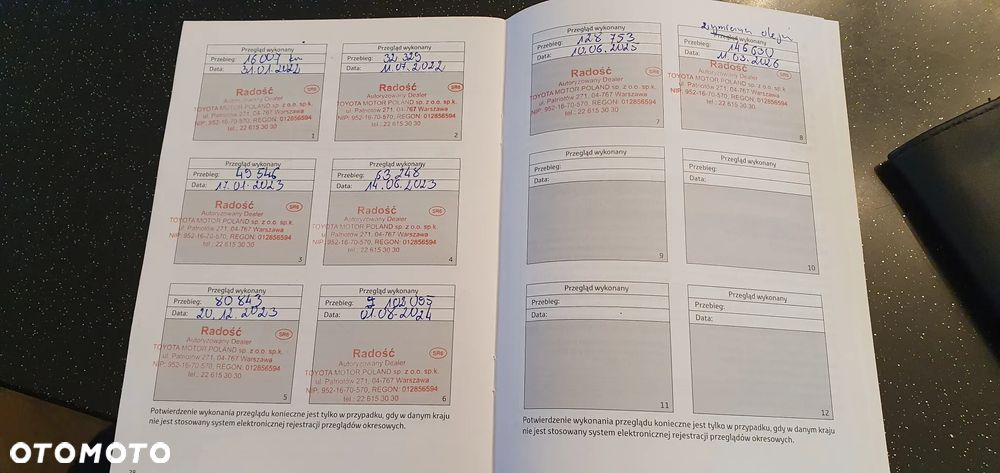 Przegląd wykonany
Przebieg: 16 007 km
Data: 31.01.2022
Radość
SR6
Autoryzowany Dealer
TOYOTA MOTOR POLAND sp. z o.o. sp.k.
ul. Patriotów 271, 04-767 Warszawa
NIP: 952-16-70-570, REGON: 012856594
tel.: 22 615 30 30
1
Przegląd wykonany
Przebieg: 32 329
Data: 11.07.2022
Radość
SR6
Autoryzowany Dealer
TOYOTA MOTOR POLAND sp. z o.o. sp.k.
ul. Patriotów 271, 04-767 Warszawa
NIP: 952-16-70-570, REGON: 012856594
tel.: 22 615 30 30
2
Przegląd wykonany
Przebieg: 49 546
Data: 17.01.2023
Radość
SR6
Autoryzowany Dealer
TOYOTA MOTOR POLAND sp. z o.o. sp.k.
ul. Patriotów 271, 04-767 Warszawa
NIP: 952-16-70-570, REGON: 012856594
tel.: 22 615 30 30
3
Przegląd wykonany
Przebieg: 63 248
Data: 14.06.2023
Radość
SR6
Autoryzowany Dealer
TOYOTA MOTOR POLAND sp. z o.o. sp.k.
ul. Patriotów 271, 04-767 Warszawa
NIP: 952-16-70-570, REGON: 012856594
tel.: 22 615 30 30
4
Przegląd wykonany
Przebieg: 80 843
Data: 20.12.2023
Radość
SR6
Autoryzowany Dealer
TOYOTA MOTOR POLAND sp. z o.o. sp.k.
ul. Patriotów 271, 04-767 Warszawa
NIP: 952-16-70-570, REGON: 012856594
tel.: 22 615 30 30
5
Przegląd wykonany
Przebieg: 102 095
Data: 01.08.2024
Radość
SR6
Autoryzowany Dealer
TOYOTA MOTOR POLAND sp. z o.o. sp.k.
ul. Patriotów 271, 04-767 Warszawa
NIP: 952-16-70-570, REGON: 012856594
tel.: 22 615 30 30
6
Potwierdzenie wykonania przeglądu konieczne jest tylko w przypadku, gdy w danym kraju
nie jest stosowany system elektronicznej rejestracji przeglądów okresowych.
28
Przegląd wykonany
Przebieg: 128 753
Data: 10.06.2025
Radość
SR6
Autoryzowany Dealer
TOYOTA MOTOR POLAND sp. z o.o. sp.k.
ul. Patriotów 271, 04-767 Warszawa
NIP: 952-16-70-570, REGON: 012856594
tel.: 22 615 30 30
7
oleju
Przegląd wykonany
Przebieg: 146 630
Data: 11.03.2026
Radość
SR6
Autoryzowany Dealer
TOYOTA MOTOR POLAND sp. z o.o. sp.k.
ul. Patriotów 271, 04-767 Warszawa
NIP: 952-16-70-570, REGON: 012856594
tel.: 22 615 30 30
8
Przegląd wykonany
Przebieg:
Data:
9
Przegląd wykonany
Przebieg:
Data:
10
Przegląd wykonany
Przebieg:
Data:
11
Przegląd wykonany
Przebieg:
Data:
12
Potwierdzenie wykonania przeglądu konieczne jest tylko w przypadku, gdy w danym kraju
nie jest stosowany system elektronicznej rejestracji przeglądów okresowych.
OTOMOTO